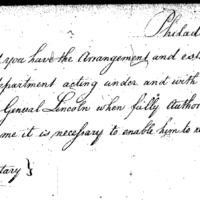 Philad
you have the Arrangement and est
department acting under and with
General Lincoln when fully Author
me it is necessary to enable him to
tary }